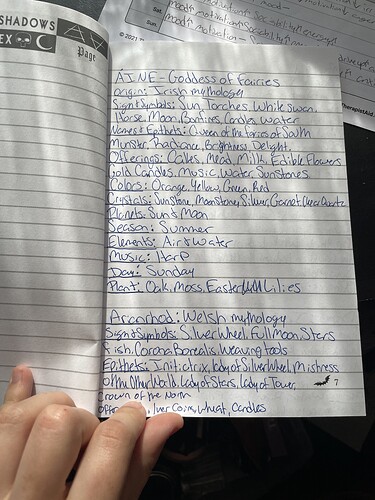 SHADOWS
EX
Page
mood↑ motivation↑ Sociability↑ energy↑
Sat.
mood↑ motivation- Sociability
Sun.
© 2021
TherapistAid.
AINE-Goddess of Fairies
Origin: Irish mythology
Sign&Symbols: Sun, Torches, White swan,
Horse, Moon, Bonfires, Candles, water
Names & Epithets: Queen of the fairies of South
Munster, Radiance, Brightness, Delight,
Offerings: Cakes, Mead, Milk, Edible Flowers
Gold Candles, Music, Water, Sunstones
Colors: Orange, Yellow, Green, Red
Crystals: Sunstone, Moonstone, Silver, Garnet, Clear Quartz
Planets: Sun & Moon
Season: Summer
Elements: Air & water
Music: Harp
Day: Sunday
Plant: Oak, Moss, Easter Lilies
Aranrhod: Welsh mythology
Sign&Symbols: Silver Wheel, Full Moon, Stars
Fish, Corona Borealis, Weaving tools
Epithets: Initiatrix, lady of Silver Wheel, Mistress
of the Other World, lady of Stars, lady of Tower,
Crown of the North
7
Silver Coins, Wheat, Candles